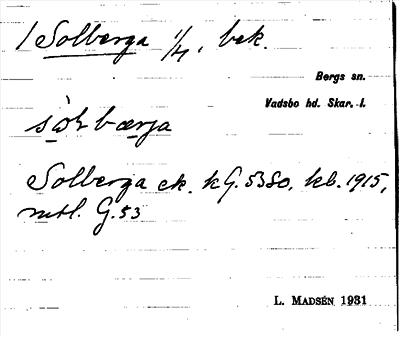 1 Solberga 1/4, bek.
Bergs sn.
Vadsbo hd. Skar. l.
sòɫbærja
Solberga ek. kG. 53SO, kb. 1915,
mtl. G. 53
L. MADSÉN 1931